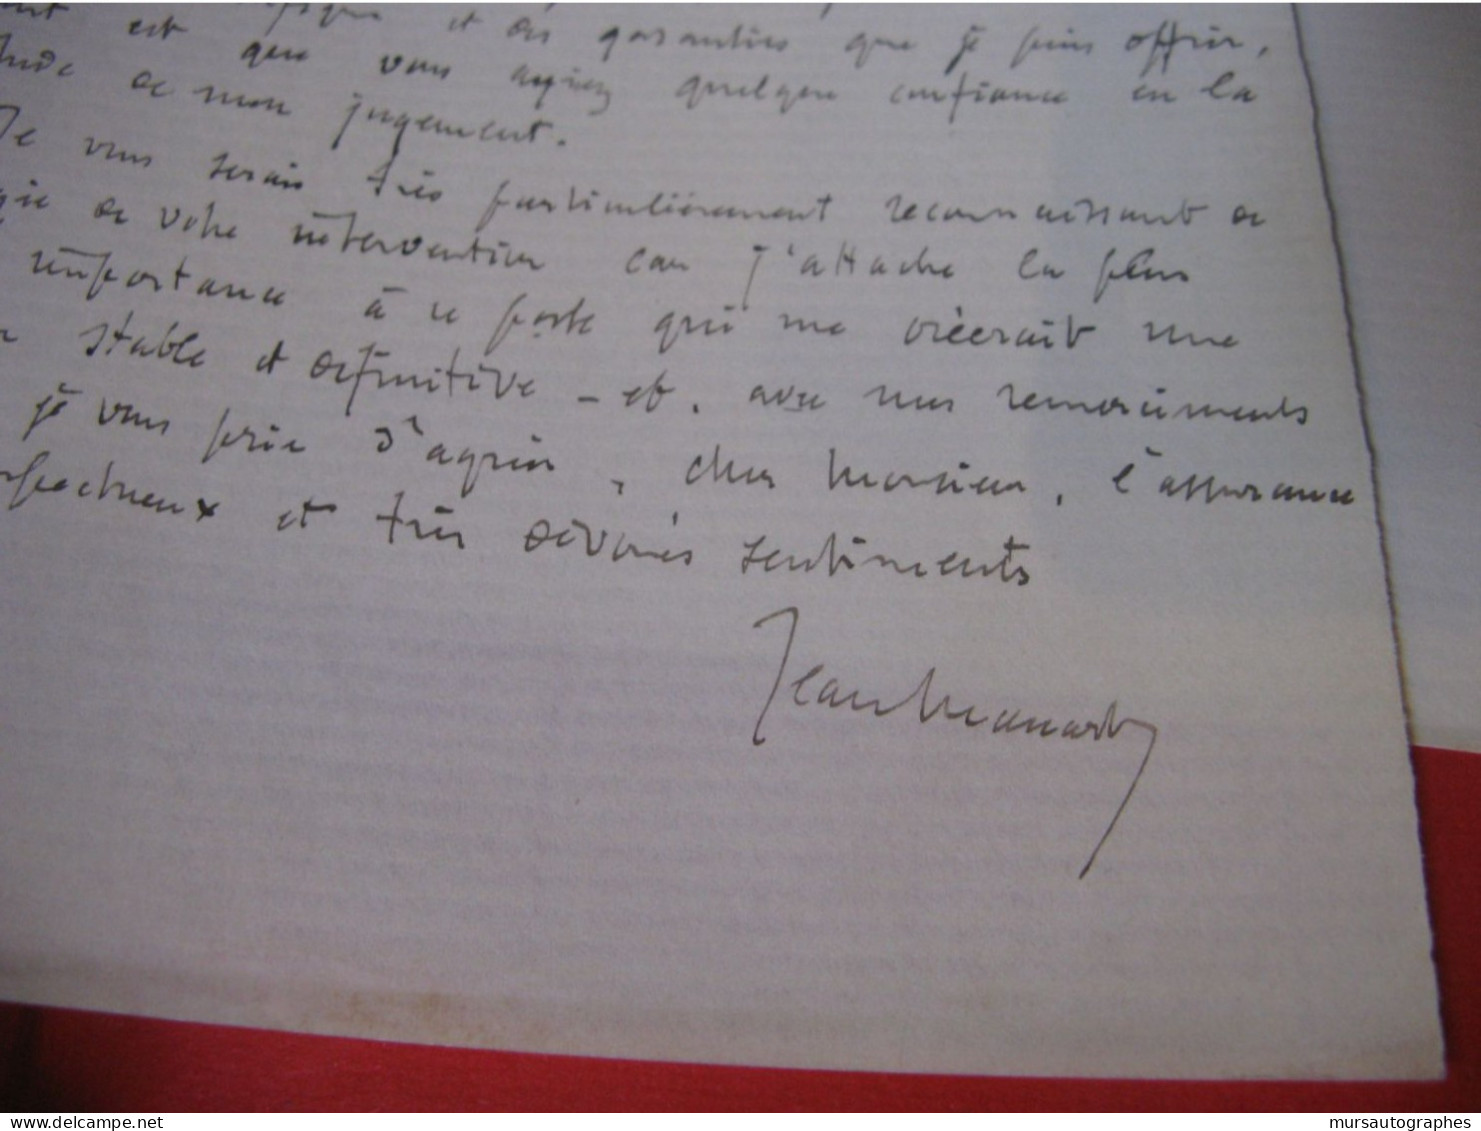 est que vous ayiez quelque confiance en la
de mon jugement.
Je vous serais très particulièrement reconnaissant de
de votre intervention car j'attache la plus
importance à ce poste qui me créerait une
stable et définitive - et, avec mes remerciements
je vous prie d'agréer, cher Monsieur, l'assurance
et très dévoués sentiments
Jean Manart
delcampe.net
mursautographes